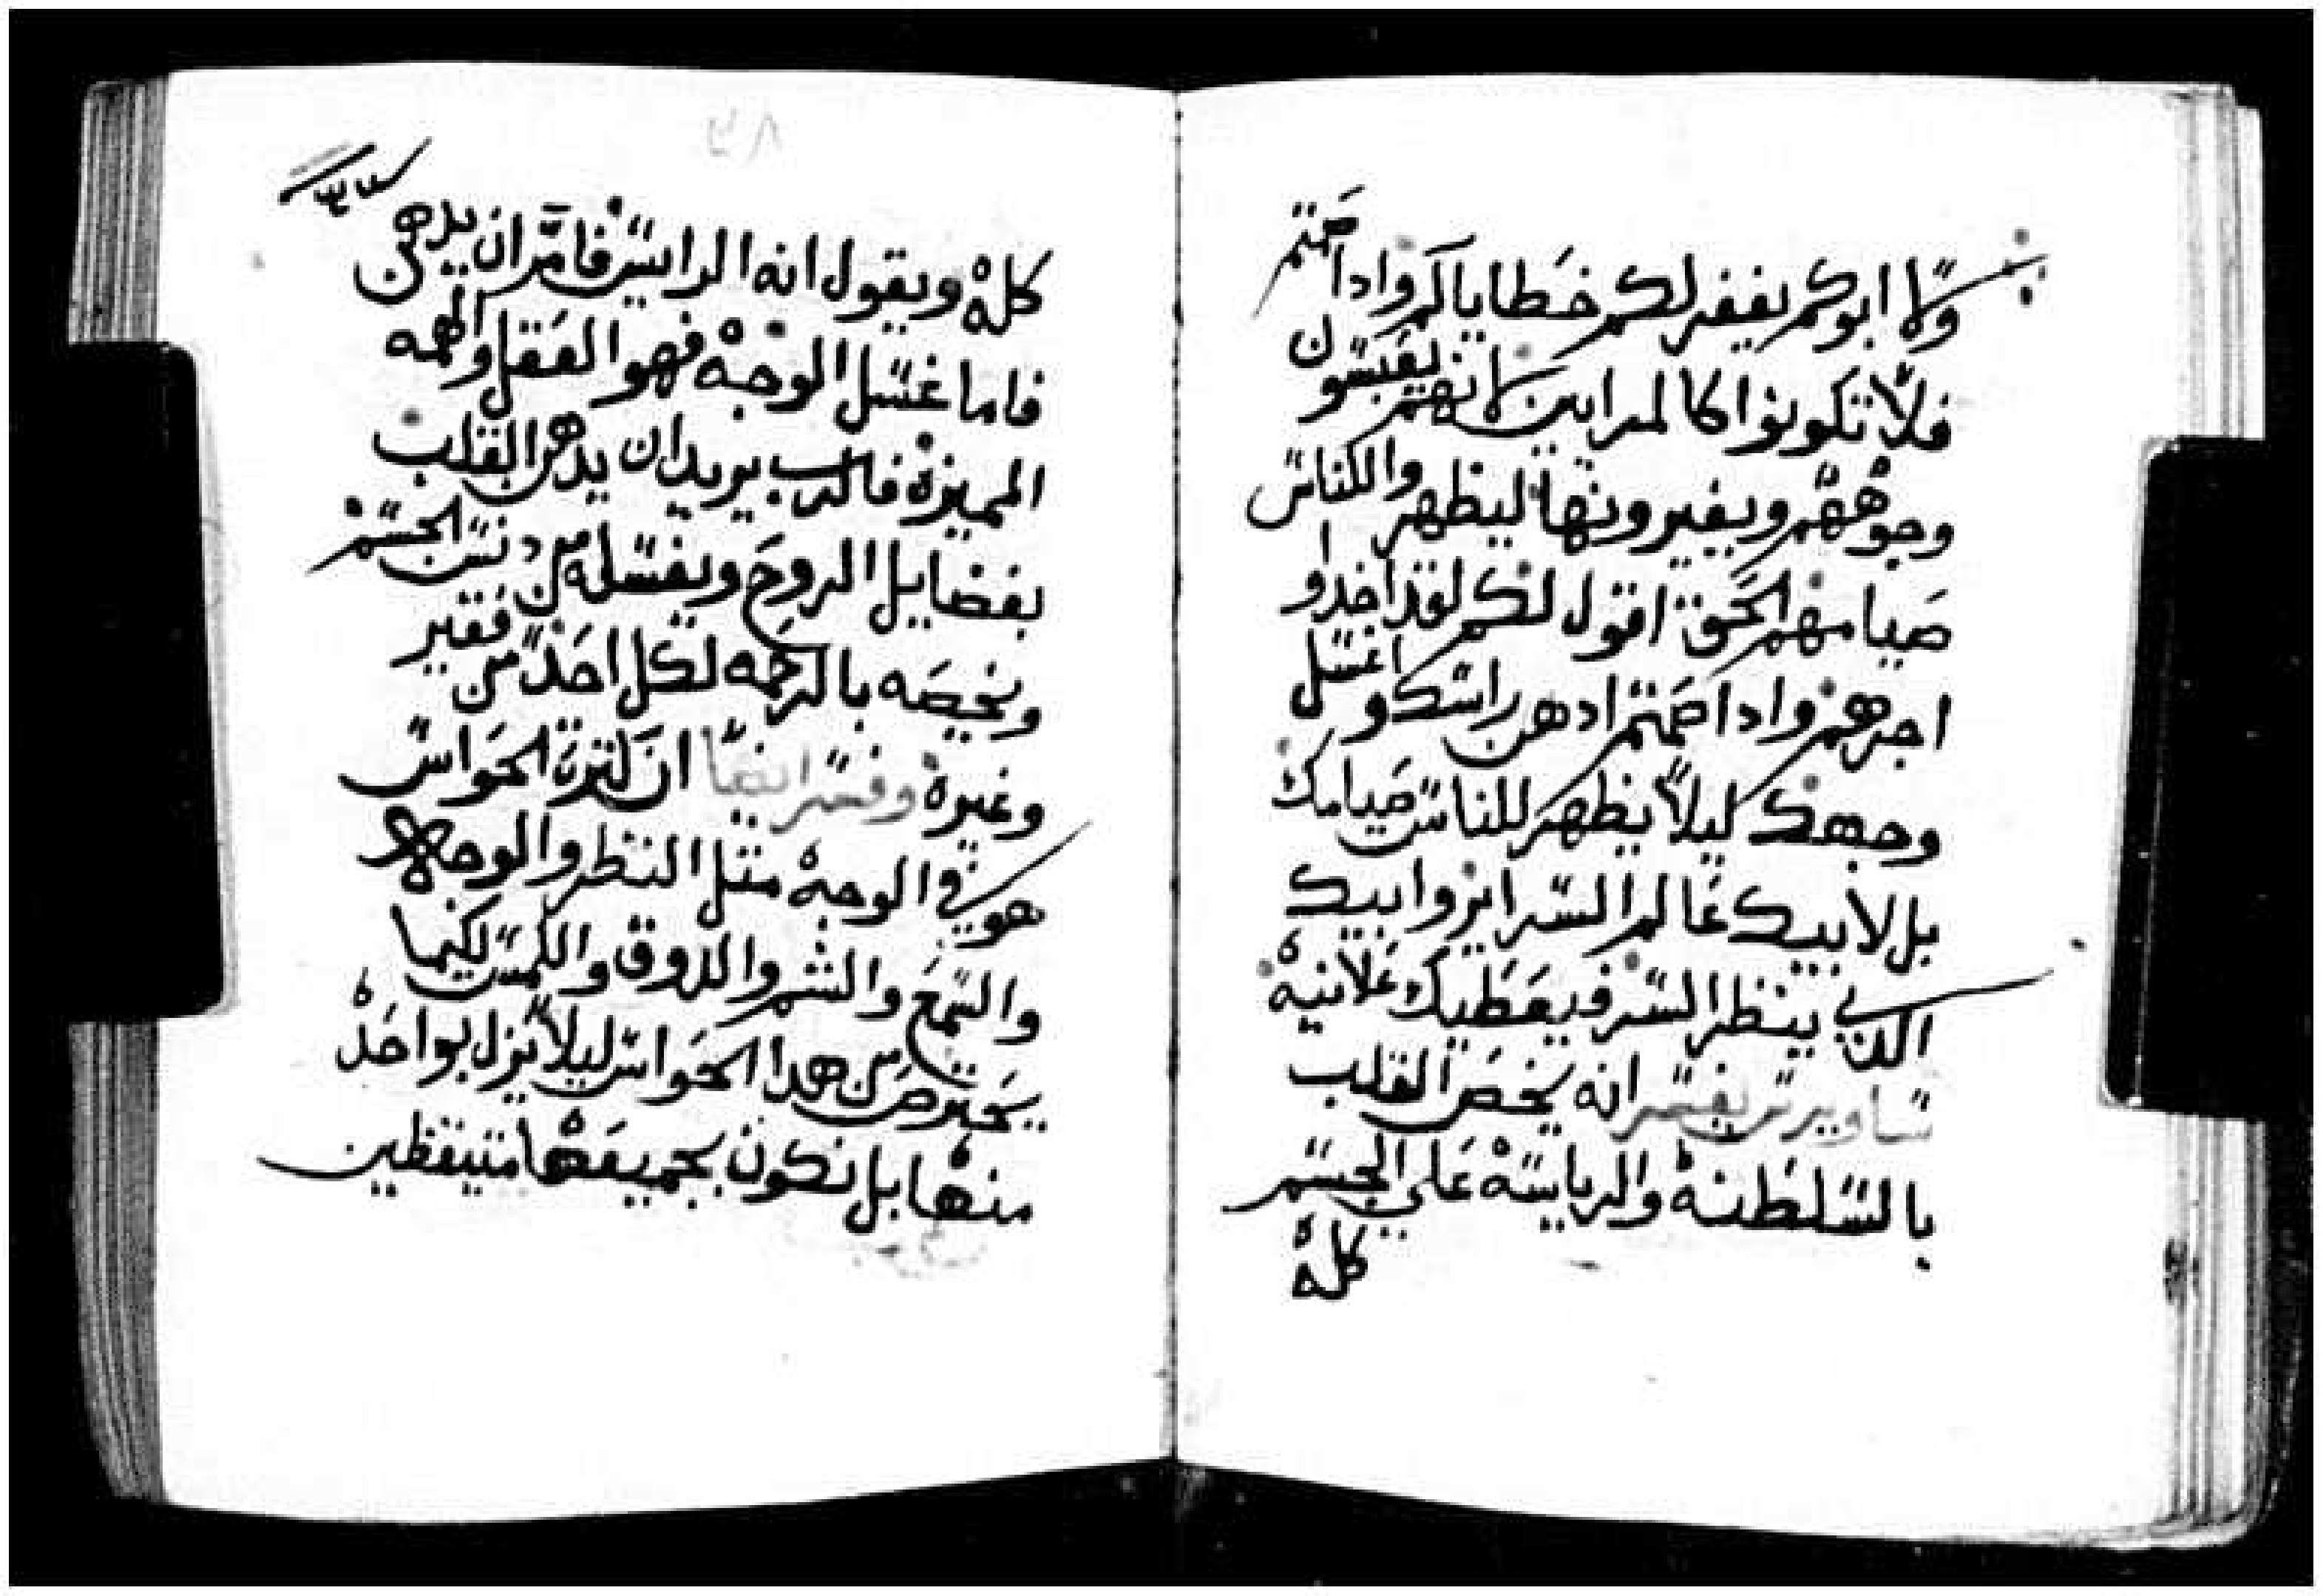 ولا ابوكم يغفر لكم خطاياكم وادا صمتم
فلا تكونوا كالمرايين لانهم يعبسون
وجوههم ويغيرونها ليظهروا للناس
صيامهم الحق اقول لكم لقد اخدوا
اجرهم واداصمتم ادهن راسك واغسل
وجهك ليلا يظهر للناس صيامك
بل لابيك عالم السراير وابيك
الدي ينظر السر فيعطيك علانيه
ساويرس يفسر انه يخص القلب
بالسلطنه والرياسه علي الجسم
كله
كله ويقول انه الرايس فامر ان يدهن
فاما غسل الوجه فهو العقل والهمه
المميزه فالرب يريد ان يدهن القلب
بفضايل الروح ويغسله من دنس الجسم
ويخصه بالرحمه لكل احد من فقير
وغيره وفسر ايضا ان كترة الحواس
هو في الوجه متل النظر والوجه
والسمع والشم والدوق واللمس لكيما
يحترص من هدا الحواس ليلا نزل بواحده
منها بل نكون بجميعها متيقظين